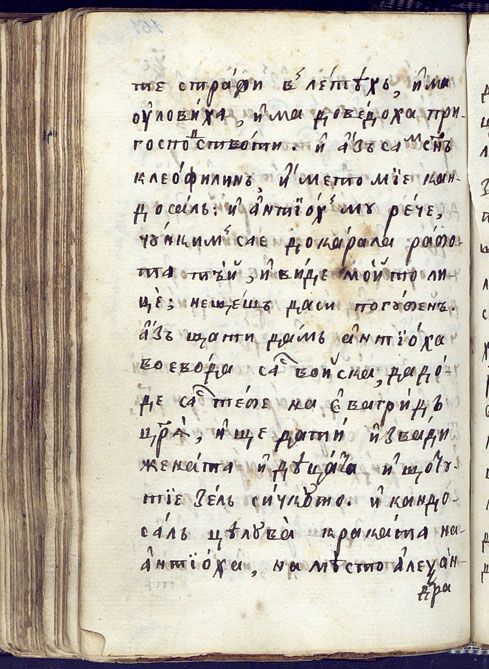 тїе стра́ѳи вꙿ ле́тѣхъ, и҆ ма
ѹ҆лови́ха, и҆ ма доведоха при
госпо́ство́ти. и҆ а҆́зъ самъ сн҃ъ
клео́филинъ, и҆ мето мѝе кан-
досалъ: и҆ а҆нтїо́хꙋ мꙋ ре́че,
до карала рабо-
та тѣй, и҆ ви́де мо́йто ли
це́, не щешъ да си погꙋбенъ.
а҆́зъ щати да́мъ а҆нтїо́ха
воево́да са воиска, да до́и-
де са тебе на е҆ватри́дъ
цр҃ѧ̀, и҆ ще да тѝ и҆звади
жена́та и҆ дꙋща́та и҆ що тꙋ-
тїе зелъ си́чкото. и҆ кандо-
салъ цѣлꙋва̀ крака́та на
а҆нтїо́ха, на мѣ́сто а҆леѯа́н-
дра